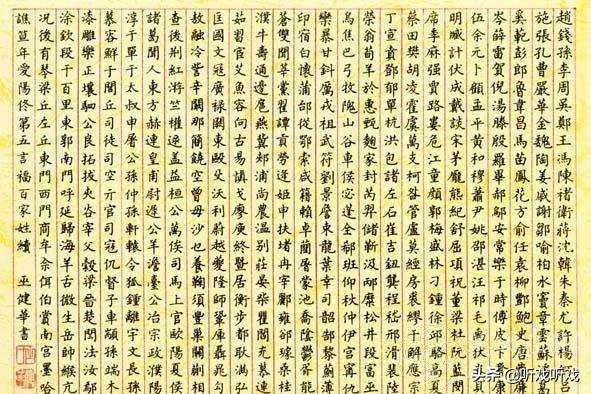 趙錢孫李周吳鄭王馮陳褚衛蔣沈韓朱秦尤許楊呂
施張孔曹嚴華金魏陶姜戚謝鄒喻柏水竇章雲蘇葛
奚範彭郎魯韋昌馬苗鳳花方俞任袁柳酆鮑史唐費廉
岑薛雷賀倪湯滕殷羅畢郝鄔安常樂于時傅皮卞齊康
伍余元卜顧孟平黃和穆蕭尹姚邵湛汪祁毛禹狄
明臧計伏成戴談宋茅龐熊紀舒屈項祝董梁杜阮藍閔
席季麻強賈路婁危江童顏郭梅盛林刁鍾徐邱駱高夏
蔡田樊胡凌霍虞萬支柯昝管盧莫經房裘繆干解應宗
丁宣賁鄧郁單杭洪包諸左石崔吉鈕龔程嵇邢滑裴陸
榮翁荀羊於惠甄麴家封芮羿儲靳汲邴糜松井段富巫
烏焦巴弓牧隗山谷車侯宓蓬全郗班仰秋仲伊宮寧仇
欒暴甘鈄厲戎祖武符劉景詹束龍葉幸司韶郜黎薊薄
印宿白懷蒲邰從鄂索咸籍賴卓藺屠蒙池喬陰鬱胥能
蒼雙聞莘黨翟譚貢勞逄姬申扶堵冉宰酈雍郤璩桑桂
濮牛壽通邊扈燕冀郟浦尚農溫別莊晏柴瞿閻充慕連
茹習宦艾魚容向古易慎戈廖庾終暨居衡步都耿滿弘
匡國文寇廣祿闕東歐殳沃利蔚越夔隆師鞏厙聶晁勾
敖融冷訾辛闞那簡饒空曾毋沙乜養鞠須豐巢關蒯相
查後荊紅游竺權逯蓋益桓公万俟司馬上官歐陽夏侯
諸葛聞人東方赫連皇甫尉遲公羊澹臺公冶宗政濮陽
淳于單于太叔申屠公孫仲孫軒轅令狐鍾離宇文長孫
慕容鮮于閭丘司徒司空亓官司寇仉督子車顓孫端木
漆雕樂正壤駟公良拓拔夾谷宰父穀梁晉楚閆法汝鄢
涂欽段干百里東郭南門呼延歸海羊舌微生岳帥緱亢
況後有琴梁丘左丘東門西門商牟佘佴伯賞南宮墨哈
譙笪年愛陽佟第五言福百家姓續 巫健華書
头条 @听戏听戏